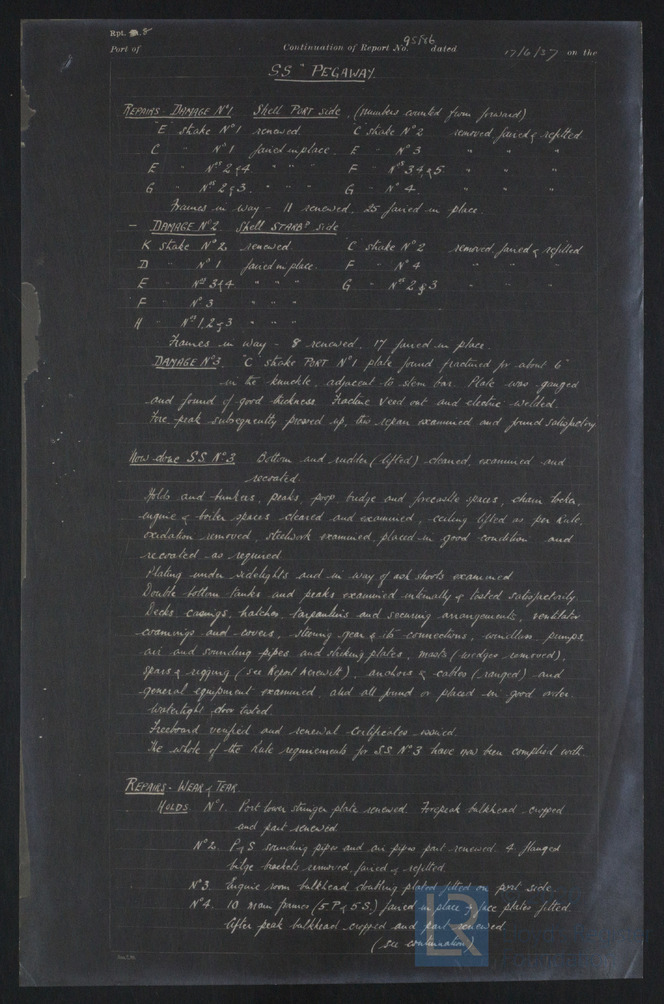 Rpt. 8
Port of Continuation of Report No. 95586 dated 17/6/37 on the
S.S. "PEGAWAY.
REPAIRS - DAMAGE No 1. Shell PORT side, (numbers counted from forward)
"E" strake No 1 renewed. C strake No 2 removed, faired & refitted
C " No 1 faired in place. E " No 3 " " "
E " Nos 2 & 4 " " " F " Nos 3 4 & 5 " " "
G " Nos 2 & 3. " " " G " No 4. " " "
Frames in way - 11 renewed, 25 faired in place.
- DAMAGE No 2. Shell STARBD side
K strake No 2 renewed. C strake No 2 removed, faired & refitted
D " No 1 faired in place. F " No 4 " " "
E " Nos 3 & 4 " " " G " Nos 2 & 3 " " "
F " No 3 " " "
H " Nos 1, 2 & 3 " " "
Frames in way - 8 renewed, 17 faired in place.
DAMAGE No 3. "C" strake PORT No 1 plate found fractured for about 6"
in the knuckle, adjacent to stem bar. Plate was gauged
and found of good thickness. Fracture veed out and electric welded.
Fore peak subsequently pressed up, the repair examined and found satisfactory
Now done S.S. No 3. Bottom and rudder (lifted) cleaned, examined and
recoated.
Holds and bunkers, peaks, poop, bridge and forecastle spaces, chain locker,
engine & boiler spaces cleared and examined, ceiling lifted as per Rule,
oxidation removed, steelwork examined, placed in good condition and
recoated as required.
Plating under sidelights and in way of ash shoots examined.
Double bottom tanks and peaks examined internally & tested satisfactorily.
Decks, casings, hatches, tarpaulins and securing arrangements, ventilator
coamings and covers, steering gear & its connections, windlass, pumps,
air and sounding pipes and striking plates, masts (wedges removed),
spars & rigging (see Report herewith), anchors & cables (ranged) and
general equipment examined, and all found or placed in good order.
Watertight door tested.
Freeboard verified and renewal Certificates issued.
The whole of the Rule requirements for S.S. No 3 have now been complied with.
REPAIRS - WEAR & TEAR.
HOLDS. No 1. Port lower stringer plate renewed. Forepeak bulkhead cropped
and part renewed
No 2. P & S sounding pipes and air pipes part renewed. 4 flanged
bilge brackets removed, faired & refitted.
No 3. Engine room bulkhead doubling plates fitted on port side.
No 4. 10 main frames (5 P. & 5 S.) faired in place & face plates fitted.
After peak bulkhead cropped and part renewed.
(see continuation)
LR